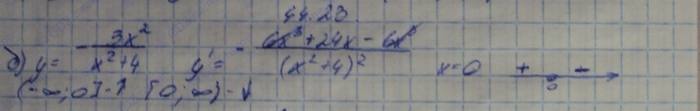 44.23
б) y = - 3x²/(x²+4) y' = - (6x³+24x-6x³)/(x²+4)² x=0 + 0 -
(-∞;0]-↑ [0;∞)-↓